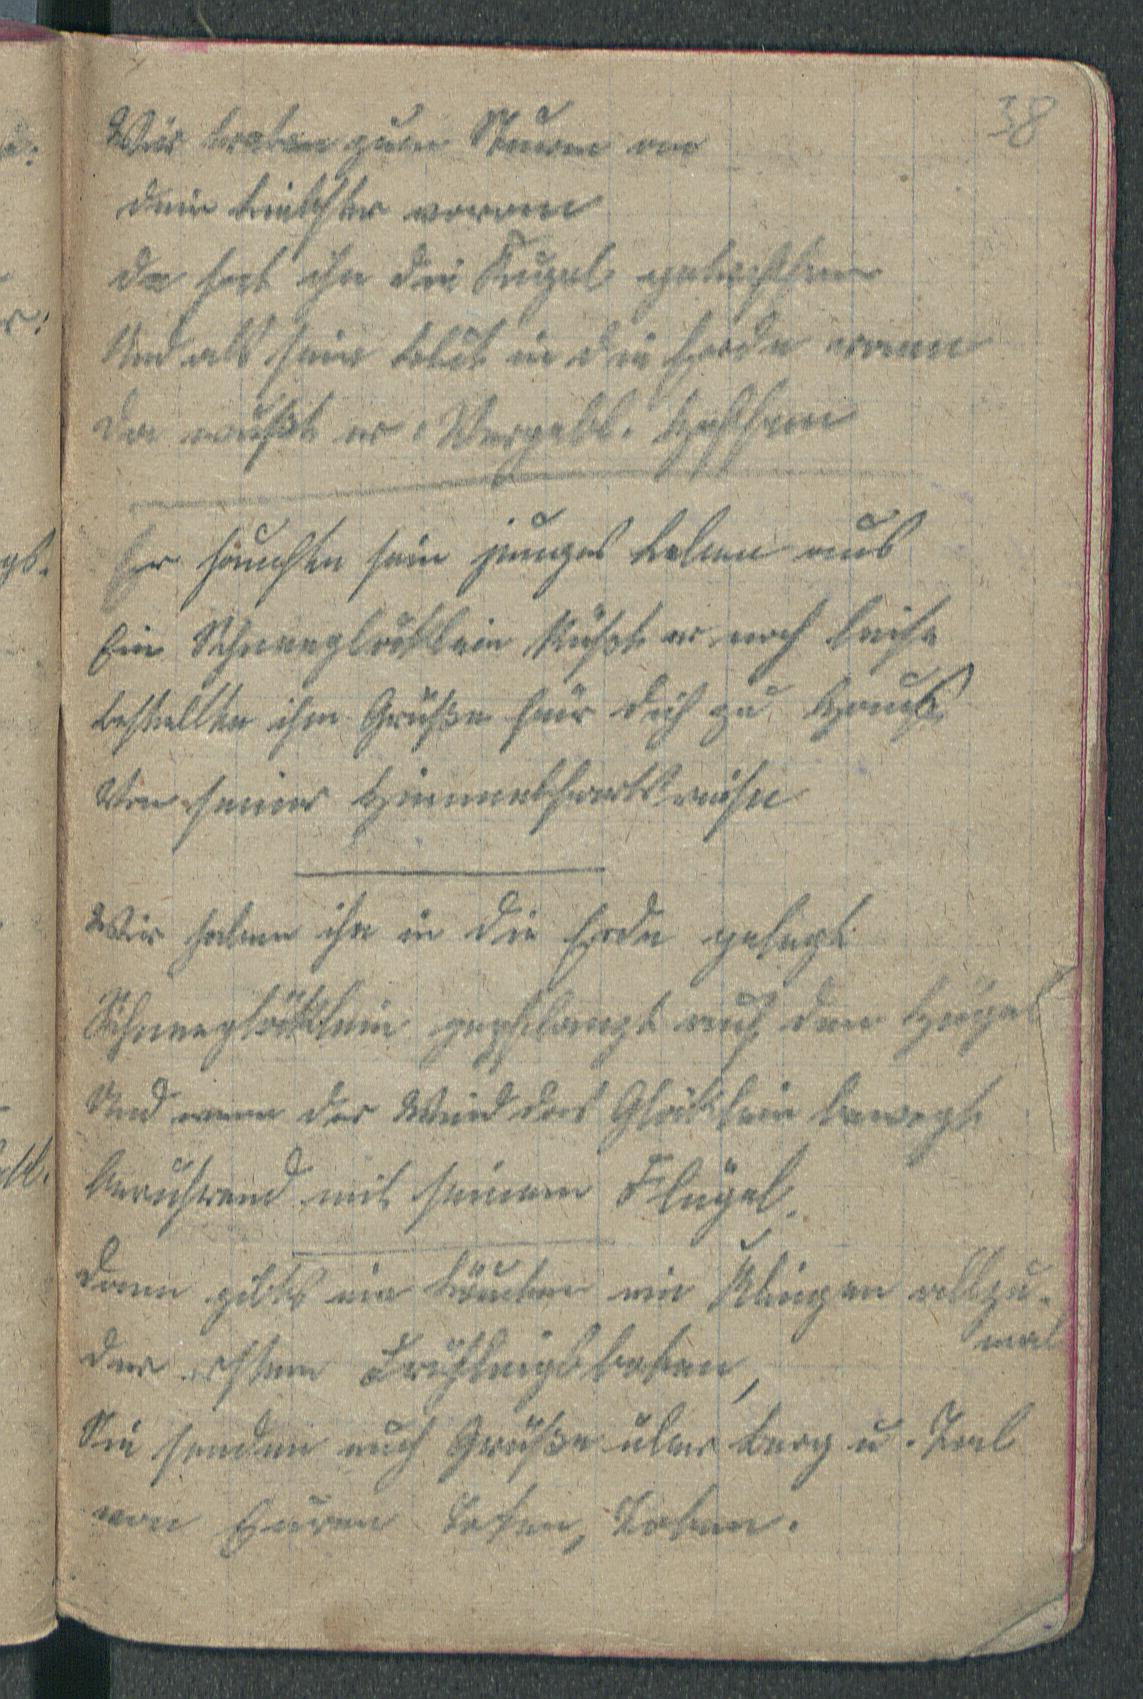 38
Wir traten zum Sturm an
dein Liebster voran
da hat ihn die Kugel getroffen
Und als sein Blut in die Erde rann
da wußt er: Vergebl. Hoffen
Er hauchte sein junges Leben aus
Ein Schneeglöcklein küßt er noch leise
bestellte ihm Grüße für dich zu Haus
Von seiner Himmelfahrtsreise
Wir haben ihn in die Erde gelegt
Schneeglöcklein gepflanzt auf den Hügel
Und wenn der Wind das Glöcklein bewegt
berührend mit seinem Flügel.
Dann gibts ein Läuten ein Klingen allzu-
mal
der ersten Frühlingsboten,
Sie senden euch Grüße über Berg u. Tal
von Euren Toten, Toten.